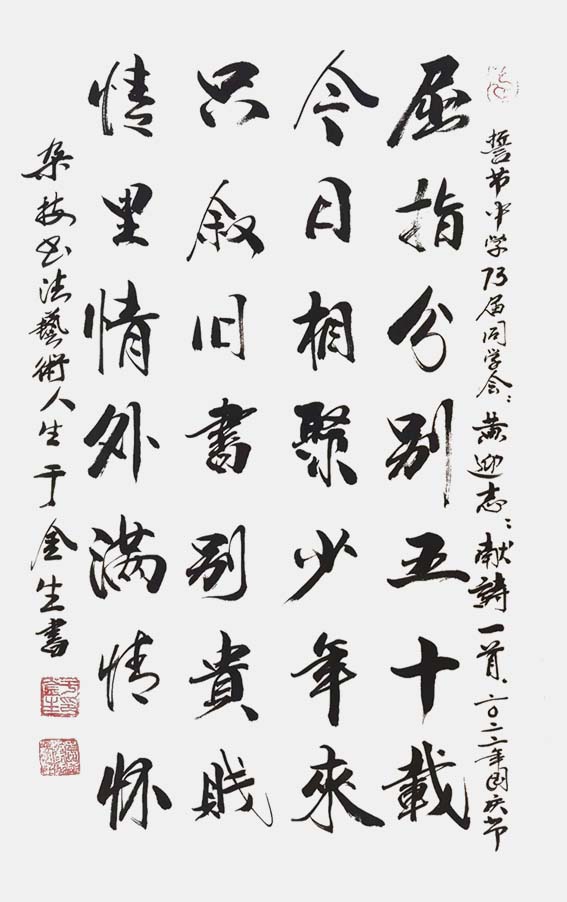 誓节中学73届同学会：黄迎志：献詩一首，二〇二二年国庆节
屈指分别五十載
今日相聚少年來
只叙旧書别貴賎
情里情外满情怀
杂技书法藝術人生于金生書